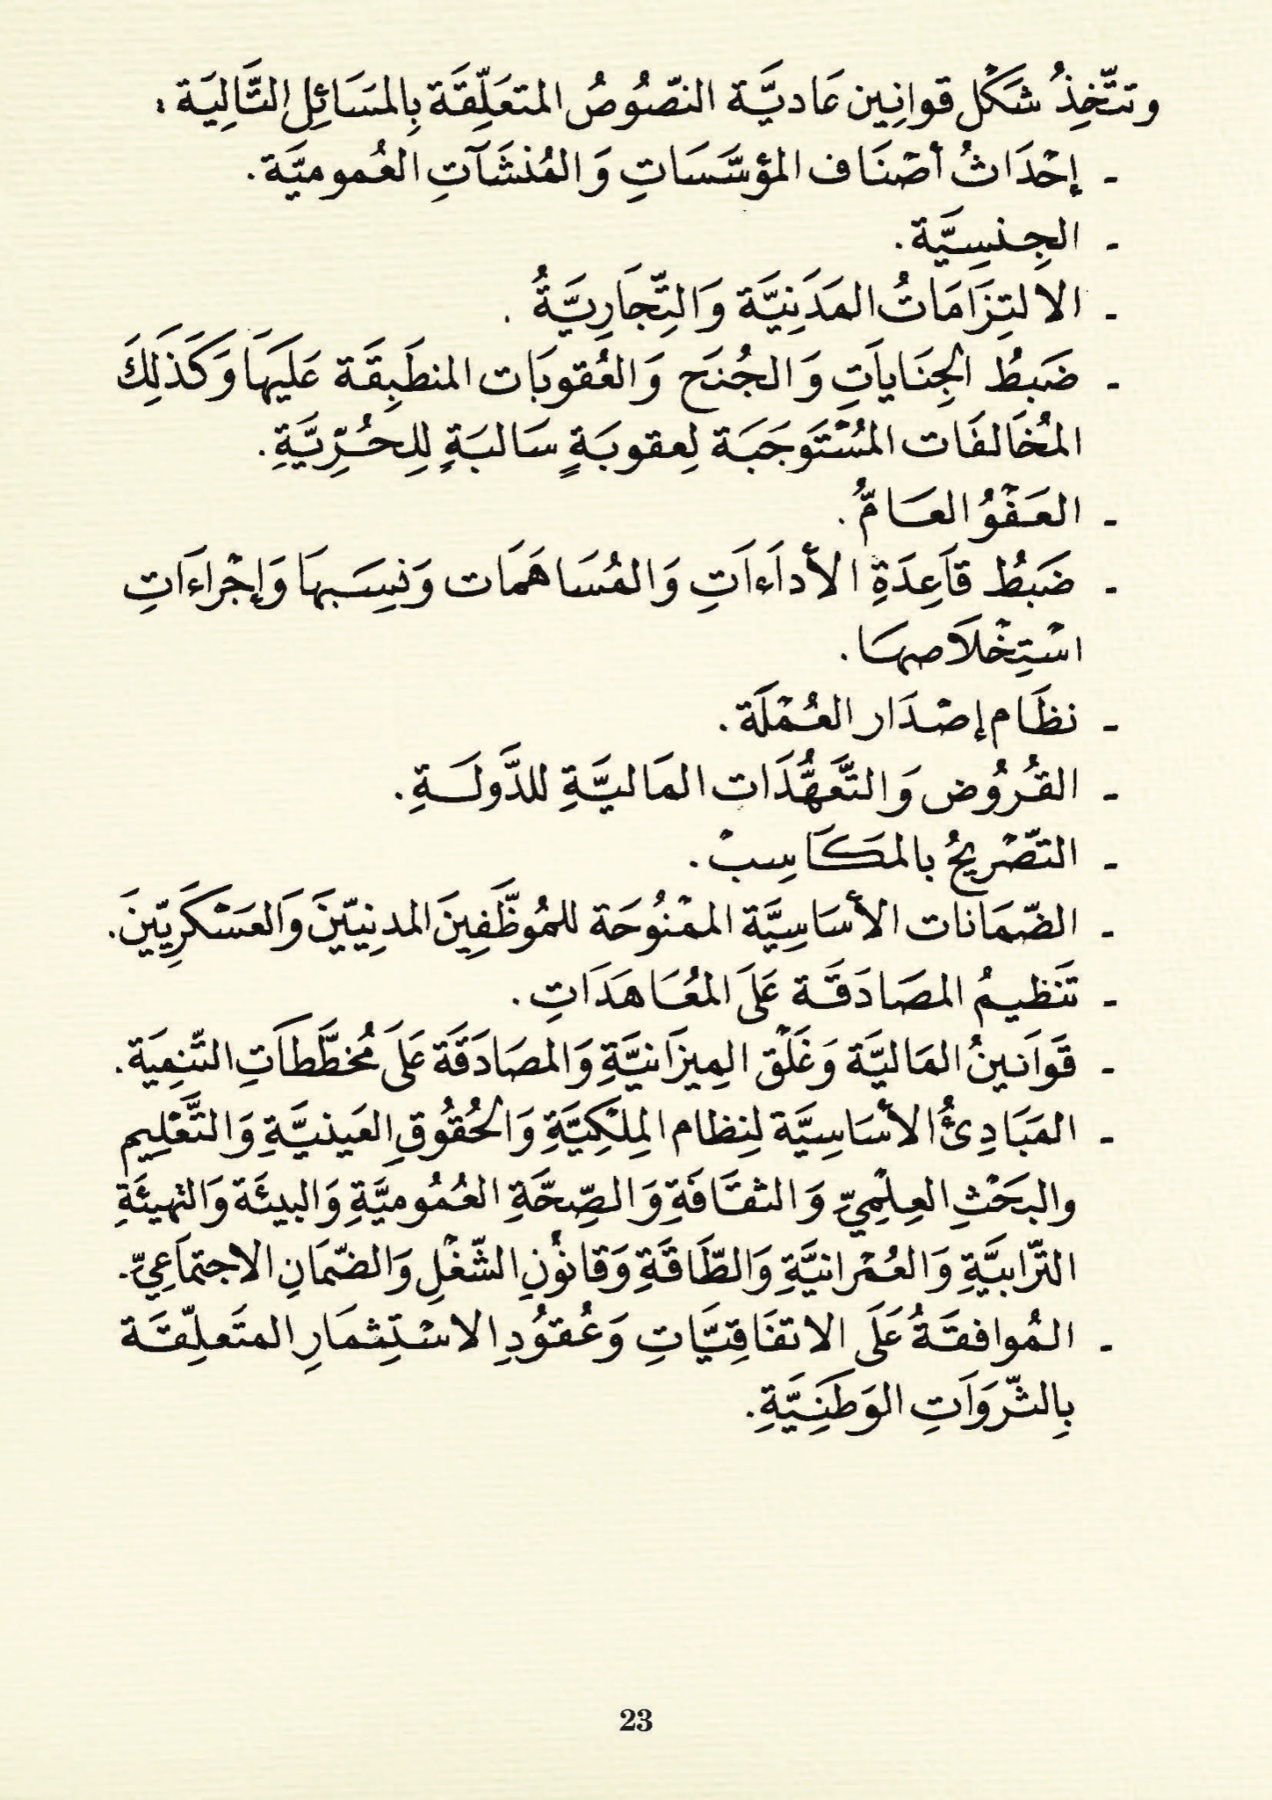 وتتَّخِذُ شَكْل قوانِين عَاديَّة النصّوُصُ المتعَلِّقَة بِالمسَائِل التَّالِيَة :
- إحْدَاثُ أصْنَاف المؤسَّسَاتِ وَالمُنشَآتِ العُموميَّة.
- الجِنسِيَّة.
- الالتِزَامَاتُ المَدَنِيَّة وَالتِّجَارِيَّةُ .
- ضَبطُ الجِنَاياَتِ وَالجُنَح وَالعُقوبَات المنطَبِقَة عَلَيهَا وَكَذَلِكَ
المُخَالفَات المُسْتَوجَبَة لِعقوبَةٍ سَالبَةٍ لِلِحُرِّيَّةِ.
- العَفْوُ العَامُّ.
- ضَبطُ قاَعِدَةِ الأداَءاَتِ وَالمُسَاهَمَات وَنسِبَهَا وَإجْراءَاتِ
اسْتِخْلَاصهَا.
- نظَام إصْدَار العُمْلَة.
- القُرُوض وَالتَّعَهُّدَات المَاليَّةِ للدَّولَةِ.
- التصّْريحُ بالمكَاسِبْ.
- الضّمَانات الأسَاسِيَّة الممْنُوحَة للمُوظَّفِينَ المدنِييّنَ وَالعَسْكَرِييّنَ.
- تَنظيمُ المصَادَقَة عَلَى المُعَاهَدَاتِ.
- قَوَانينُ المَاليَّة وَغَلْق المِيزَانيَّةِ وَالمصَادَقَة عَلَى مُخطَّطاَتِ التّنمِيَة.
- المَبَادِئُ الأسَاسِيَّة لِنِظام المِلْكِيَّةِ وَالحُقُوقِ العَينيَّةِ وَالتَّعْلِيم
والبَحْثِ العِلْمِيِّ وَالثقَافَةِ وَالصِّحَّةِ العُمُوميَّةِ وَالبيئَة وَالتهيئَةِ
التّرَابيَّةِ وَالعُمْرانيَّةِ وَالطّاقَةِ وَقانوُنِ الشّغْلِ وَالضّمَانِ الاجتمَاعِيِّ.
- المُوافقَةُ عَلَى الاتفَاقِيَّاتِ وَعُقوُدِ الاسْتِثمَارِ المتَعلِّقَة
بِالثّرَوَاَتِ الوَطَنِيَّةِ.
23